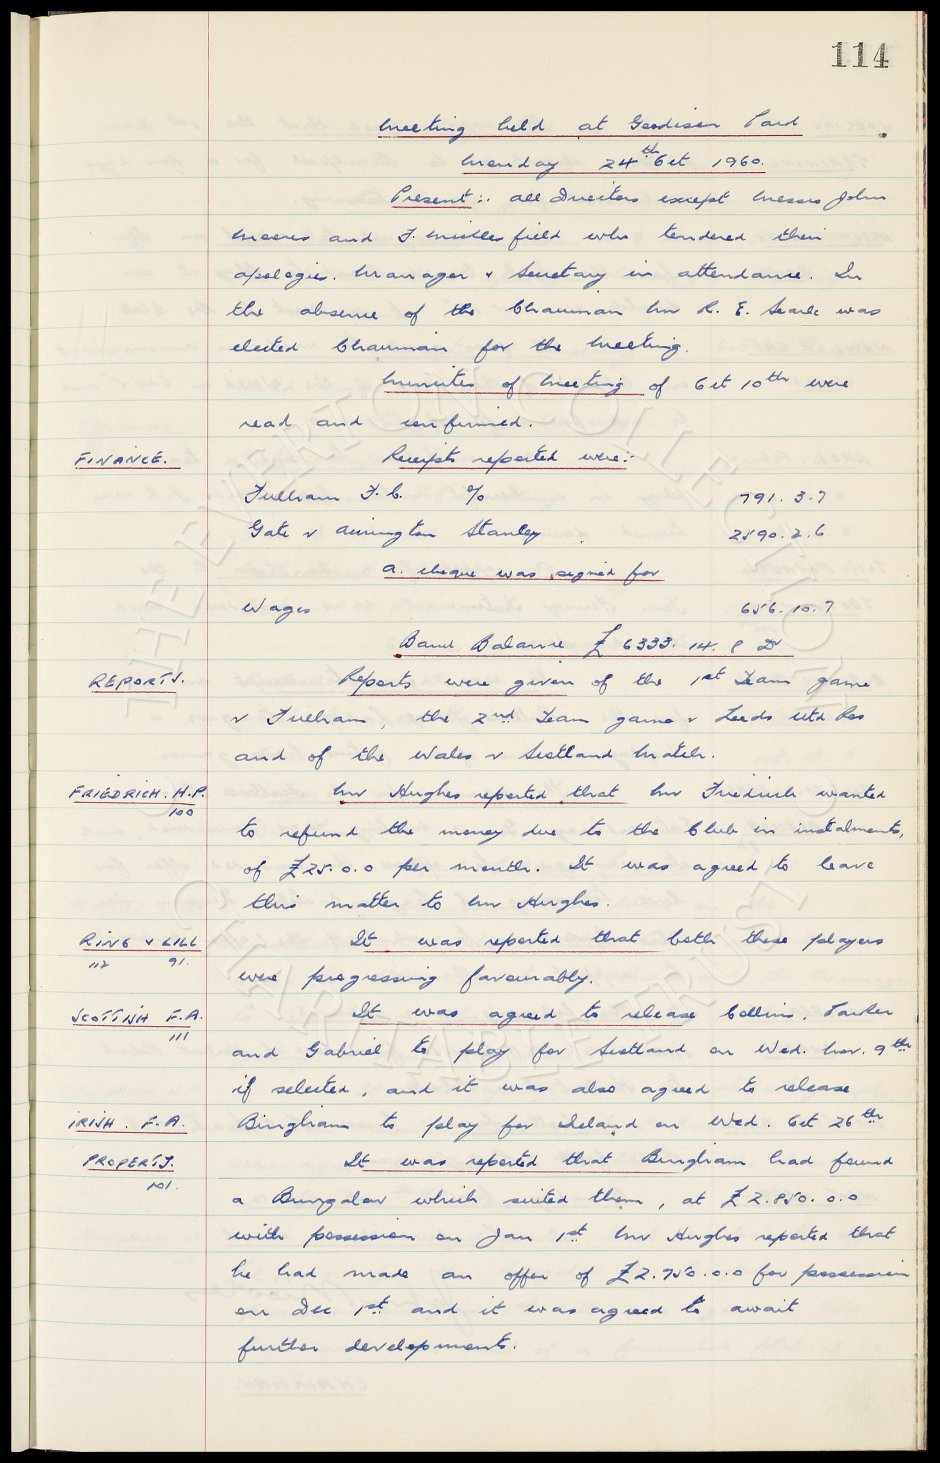 114
Meeting held at Goodison Park
Monday 24th Oct 1960.
Present:- All Directors except Messrs John
Moores and F. Micklesfield who tendered their
apologies. Manager & Secretary in attendance. In
the absence of the Chairman Mr R. E. Searle was
elected Chairman for the Meeting.
Minutes of Meeting of Oct 10th were
read and confirmed.
FINANCE. Receipts reported were:-
Fulham F.C. % 791. 3. 7
Gate v Accrington Stanley 2890. 2. 6
A. cheque was signed for
Wages 656. 10. 7
Bank Balance £ 6333. 14. 8 Dr
REPORTS. Reports were given of the 1st Team game
v Fulham, the 2nd Team game v Leeds Utd Res
and of the Wales v Scotland Match.
FRIEDRICH. H.P. Mr Hughes reported that Mr Friedrich wanted
100
to refund the money due to the Club in instalments,
of £25. 0. 0 per month. It was agreed to leave
this matter to Mr Hughes.
RING & LILL It was reported that both these players
112 91.
were progressing favourably.
SCOTTISH F.A. It was agreed to release Collins, Parker
111
and Gabriel to play for Scotland on Wed. Nov. 9th
if selected, and it was also agreed to release
IRISH. F.A. Bingham to play for Ireland on Wed. Oct 26th
PROPERTY. It was reported that Bingham had found
101.
a Bungalow which suited them, at £2.850. 0. 0
with possession on Jan 1st Mr Hughes reported that
he had made an offer of £2.750. 0. 0 for possession
on Dec 1st and it was agreed to await
further developments.
THE EVERTON COLLECTION
CHARITABLE TRUST